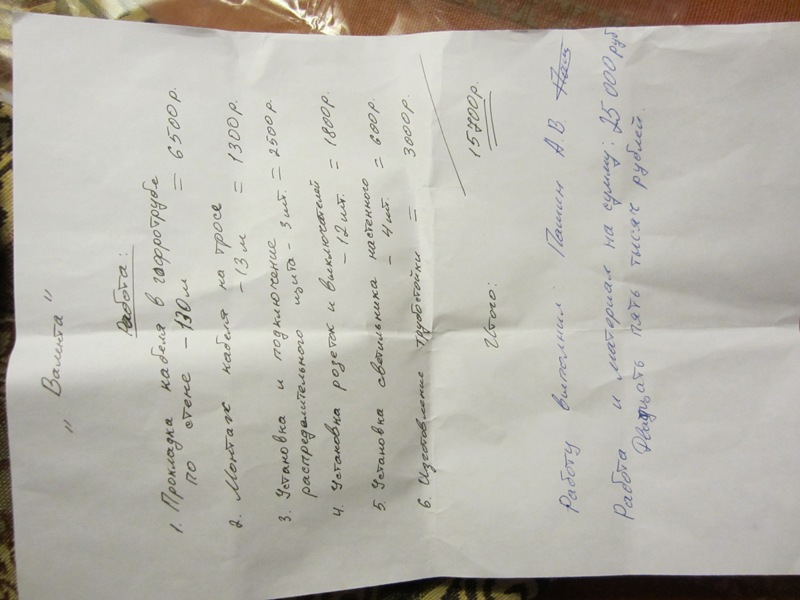 " Валента "
Работа:
1. Прокладка кабеля в гофротрубе
по стене - 130 м = 6500 р.
2. Монтаж кабеля на тросе
- 13 м = 1300 р.
3. Установка и подключение
распределительного щита - 3 шт. = 2500 р.
4. Установка розеток и выключателей
- 12 шт. = 1800 р.
5. Установка светильника настенного
- 4 шт. = 600 р.
6. Изготовление трубостойки = 3000 р.
Итого: 15700 р.
Работу выполнил Пашин А.В.
Работа и материал на сумму: 25 000 руб
Двадцать пять тысяч рублей.